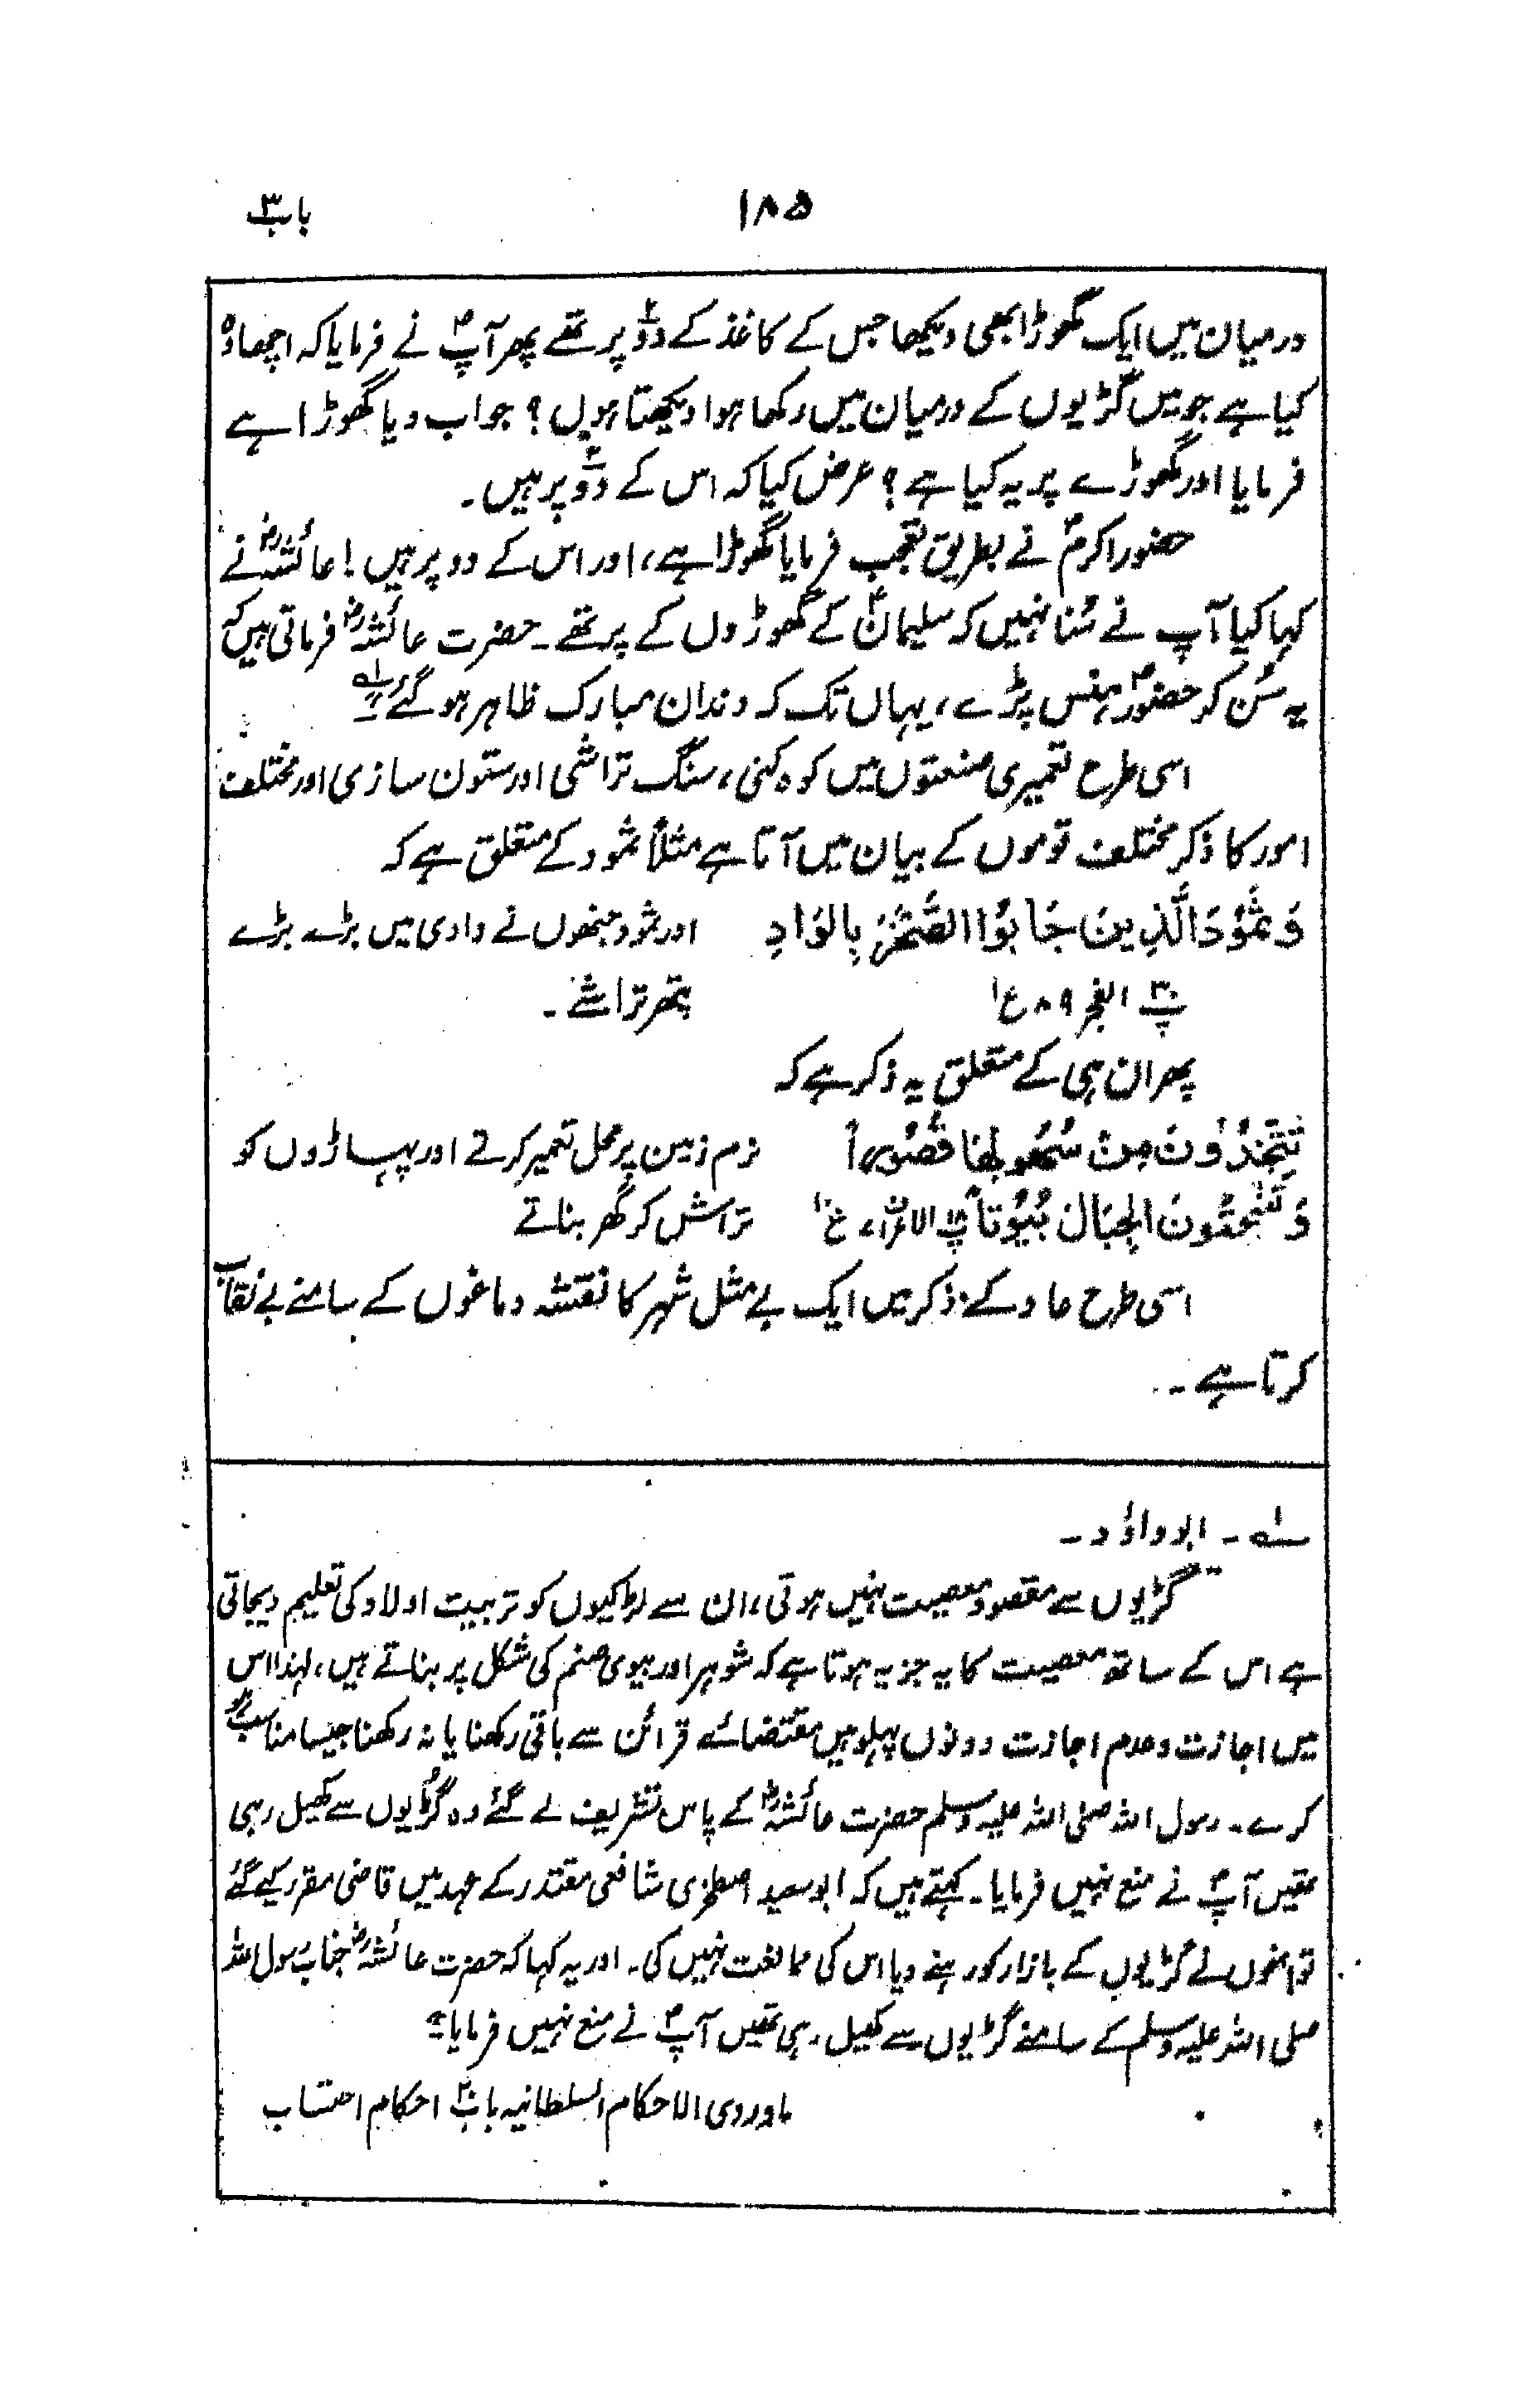 باب۳
۱۸۵
درمیان میں ایک گھوڑا بھی دیکھا جس کے کاغذ کے دو۲ پر تھے پھر آپؐ نے فرمایا کہ اچھا وہ
کیا ہے جو میں گڑیوں کے درمیان میں رکھا ہوا دیکھتا ہوں ؟ جواب دیا گھوڑا ہے
فرمایا اور گھوڑے پر یہ کیا ہے ؟ عرض کیا کہ اس کے دو۲ پر ہیں ۔
حضور اکرمؐ نے بطریق تعجب فرمایا گھوڑا ہے، اور اس کے دو پر ہیں ! عائشہؓ نے
کہا کیا آپ نے سُنا نہیں کہ سلیمانؑ کے گھوڑوں کے پر تھے ۔ حضرت عائشہؓ فرماتی ہیں کہ
یہ سُن کر حضورؐ ہنس پڑے، یہاں تک کہ دندان مبارک ظاہر ہو گئے ۱؎
اسی طرح تعمیری صنعتوں میں کوہ کنی، سنگ تراشی اور ستون سازی اور مختلف
امور کا ذکر مختلف قوموں کے بیان میں آتا ہے مثلاً ثمود کے متعلق ہے کہ
وَثَمُوْدَ الَّذِیْنَ جَابُوا الصَّخْرَ بِالْوَادِ اور ثمود جنھوں نے وادی میں بڑے بڑے
پ۳۰ الفجر ۸۹ ع۱ پتھر تراشے ۔
پھر ان ہی کے متعلق یہ ذکر ہے کہ
تَتَّخِذُوْنَ مِنْ سُهُوْلِهَا قُصُوْراً نرم زمین پر محل تعمیر کرتے اور پہاڑوں کو
وَتَنْحِتُوْنَ الْجِبَالَ بُیُوْتاً پ۸ الاعراف ۷ ع۱۰ تراش کر گھر بناتے
اسی طرح عاد کے ذکر میں ایک بے مثل شہر کا نقشہ دماغوں کے سامنے بے نقاب
کرتا ہے ۔
۱؎ ۔ ابو داؤد ۔
گڑیوں سے مقصود معصیت نہیں ہوتی، ان سے لڑکیوں کو تربیت اولاد کی تعلیم دیجاتی
ہے اس کے ساتھ معصیت کا یہ جزیہ ہوتا ہے کہ شوہر اور بیوی صنم کی شکل پر بناتے ہیں، لہٰذا اس
میں اجازت و عدم اجازت دونوں پہلو ہیں مقتضائے قرائن سے باقی رکھنا یا نہ رکھنا جیسا مناسب ہو
کرے ۔ رسول اللہ صلی اللہ علیہ وسلم حضرت عائشہؓ کے پاس تشریف لے گئے وہ گڑیوں سے کھیل رہی
تھیں آپؐ نے منع نہیں فرمایا ۔ کہتے ہیں کہ ابو سعید اصطخری شافعی مقتدر کے عہد میں قاضی مقرر کیے گئے
تو انھوں نے گڑیوں کے بازار کو رہنے دیا اس کی ممانعت نہیں کی ۔ اور یہ کہا کہ حضرت عائشہؓ جناب رسول اللہ
صلی اللہ علیہ وسلم کے سامنے گڑیوں سے کھیل رہی تھیں آپؐ نے منع نہیں فرمایا
ماوردی الاحکام السلطانیہ باب۲۰ احکام احتساب